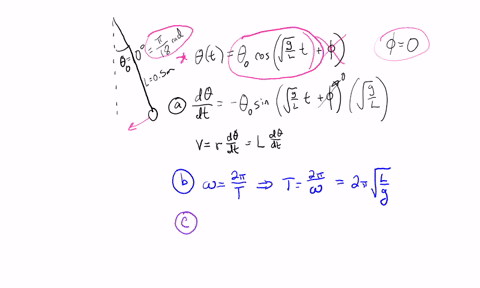 θ₀ = 10° = π/18 rad
L=0.5m
* θ(t) = θ₀ cos(√(g/L) t + ϕ)
ϕ = 0
(a) dθ/dt = -θ₀ sin(√(g/L) t + ϕ⁰)(√(g/L))
v = r dθ/dt = L dθ/dt
(b) ω = 2π/T ⇒ T = 2π/ω = 2π √(L/g)
(c)